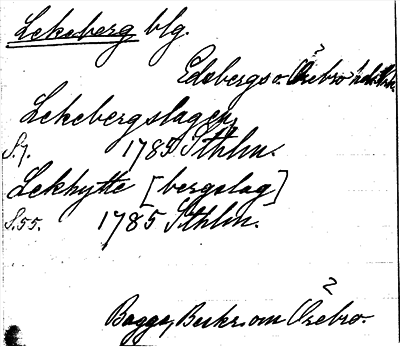 Lekeberg blg.
Edsbergs o. Örebro
Lekebergslagen
S. 7. 1785 Sthlm.
Lekhytte [bergslag]
S. 55. 1785 Sthlm.
2
Bagge, Beskr. om Örebro.